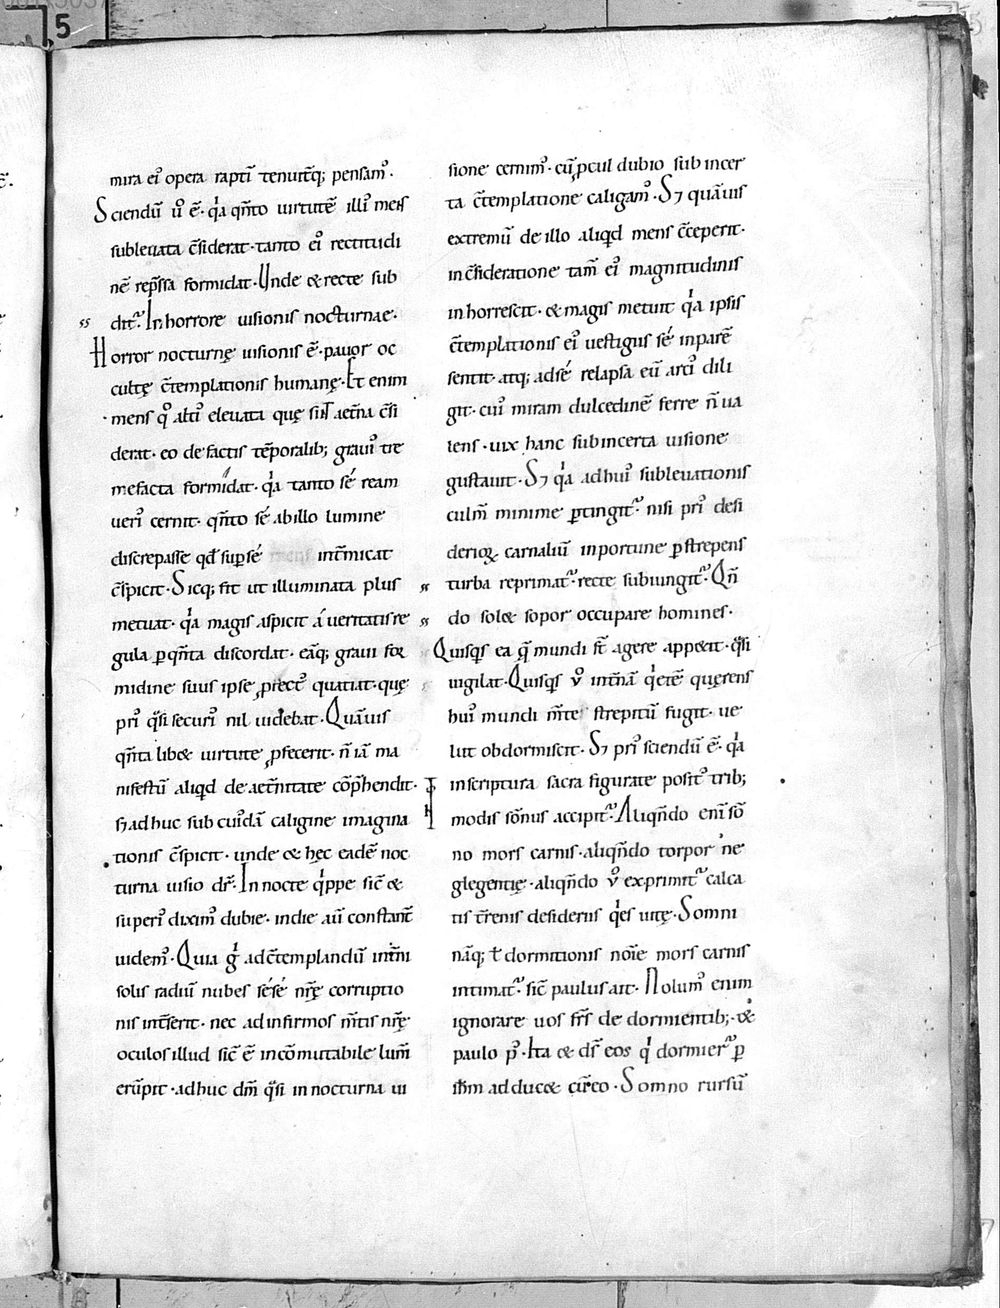 5
mira ei᷒ opera raptī tenuit̄q; pensam᷒.
Sciendū ū ē. q̇a qn̄to uirtutē illi᷒ mens
subleuata c̄siderat. tanto ei᷒ rectitudi
nē rep̄ssa formidat. Unde & recte sub
dit᷑. In horrore uisionis nocturnae.
Horror nocturnę uisionis ē. pauor oc
cultę c̄templationis humanę. Et enim
mens q᷒ alti᷒ eleuata quę sūt aet̄na c̄si
derat. eo de factis tēporalib; graui᷒ tre
mefacta formidat. q̇a tanto sé ream
ueri᷒ cernit. qn̄to sé ab illo lumine
discrepasse qd̄ sup sé int̄micat
c̄spicit. Sicq; fit ut illuminata plus
metuat. q̇a magis aspicit á ueritatis re
gula p̱ qn̄ta discordat. eāq; graui for
midine suus ipse ꝓfect᷒ quatiat. quę
pri᷒ q̄si securi᷒ nil uidebat. Quāuis
qn̄ta lib& uirtute ꝓfecerit. n̄ iā ma
nifestū aliqd de aet̄nitate cōp̄hendit.
s; adhuc sub cui᷒dā caligine imagina
tionis c̄spicit. unde & hęc eadē noc
turna uisio dr̄. In nocte q̇ppe sic̄ &
superi᷒ dixim᷒ dubie. in die aū constant̄
uidem᷒. Quia g̊ ad c̄templandū int̄ni
solis radiū nubes sésé nr̄ę corruptio
nis int̄serit. nec ad infirmos m̄tis nr̄ę
oculos illud sic̄ ē incōmutabile lum̄
erūpit. adhuc dm̄ q̄si in nocturna ui
sione cernim᷒. cū ꝓcul dubio sub incer
ta c̄templatione caligam᷒. S; quāuis
extremū de illo aliqd mens c̄ceperit.
in c̄sideratione tam̄ ei᷒ magnitudinis
inhorrescit. & magis metuit q̇a ipsis
c̄templationis ei᷒ uestigiis sé inparē
sentit. atq; ad sé relapsa eū arti᷒ dili
git. cui᷒ miram dulcedinē ferre n̄ ua
lens. uix hanc sub incerta uisione
gustauit. S; q̇a ad hui᷒ subleuationis
culm̄ minime p̱tingit᷑. nisi pri᷒ desi
derioꝝ carnaliū inportune p̱strepens
turba reprimat᷑. recte subiungit᷑. Qn̄
do sol& sopor occupare homines.
Quisq̄s ea q̄ mundi st̄ agere app&it. q̄si
uigilat. Quisq̄s v᷒ int̄nā q̇etē quęrens
hui᷒ mundi m̄te strepitū fugit. ue
lut obdormiscit. S; pri᷒ sciendū ē. q̇a
in scriptura sacra figurate posit᷒ trib;
modis sōnus accipit᷑. Aliqn̄do enī sō
no mors carnis. aliqn̄do torpor ne
glegentię. aliqn̄do v᷒ exprimit᷑ calca
tis t̄renis desideriis q̇es uitę. Somni
nāq; ł dormitionis noīe mors carnis
intimat᷑. sic̄ paulus ait. Nolum᷒ enim
ignorare uos fr̄s de dormientib;. &
paulo p᷒. Ita & ds̄ eos q̇ dormier᷑ p̱
ih̄m adduc& cū eo. Somno rursū